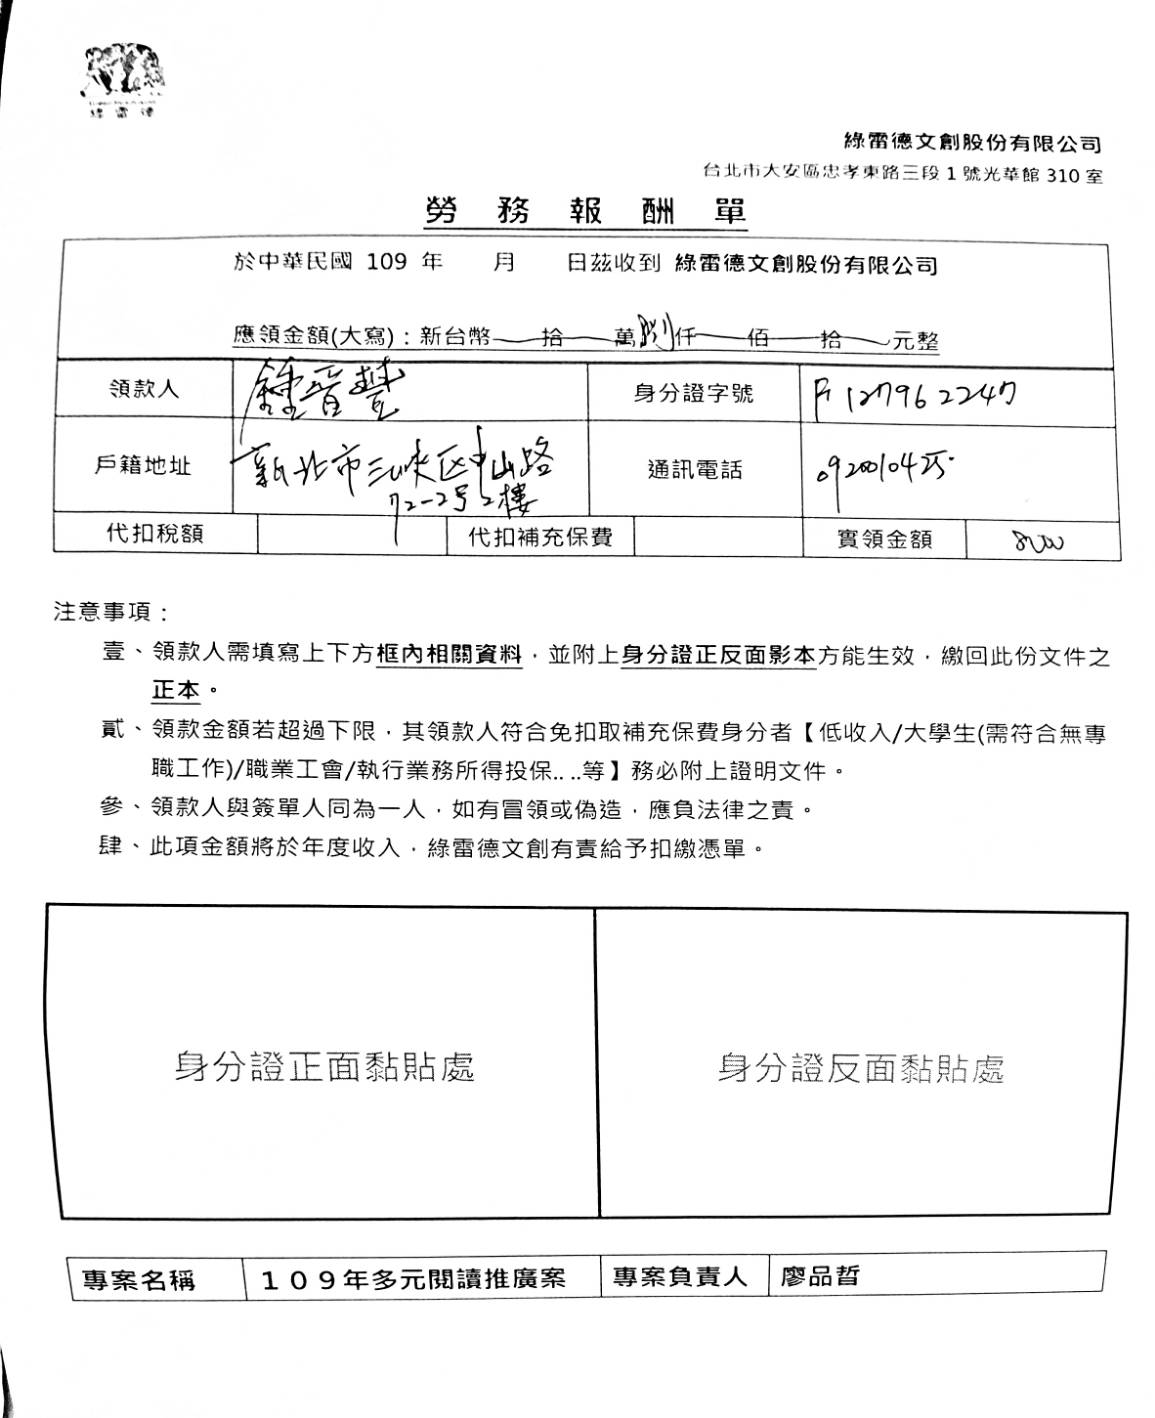 綠雷德
綠雷德文創股份有限公司
台北市大安區忠孝東路三段1號光華館310室
勞務報酬單
於中華民國 109 年 月 日茲收到 綠雷德文創股份有限公司
應領金額(大寫)：新台幣 拾 萬捌仟 佰 拾 元整
領款人 鍾 身分證字號 F127962247
戶籍地址 新北市三峽区中山路 通訊電話 0920010425
72-2号2樓
代扣稅額 代扣補充保費 實領金額 8000
注意事項：
壹、領款人需填寫上下方框內相關資料，並附上身分證正反面影本方能生效，繳回此份文件之
正本。
貳、領款金額若超過下限，其領款人符合免扣取補充保費身分者【低收入/大學生(需符合無專
職工作)/職業工會/執行業務所得投保.. ..等】務必附上證明文件。
參、領款人與簽單人同為一人，如有冒領或偽造，應負法律之責。
肆、此項金額將於年度收入，綠雷德文創有責給予扣繳憑單。
身分證正面黏貼處 身分證反面黏貼處
專案名稱 １０９年多元閱讀推廣案 專案負責人 廖品晢